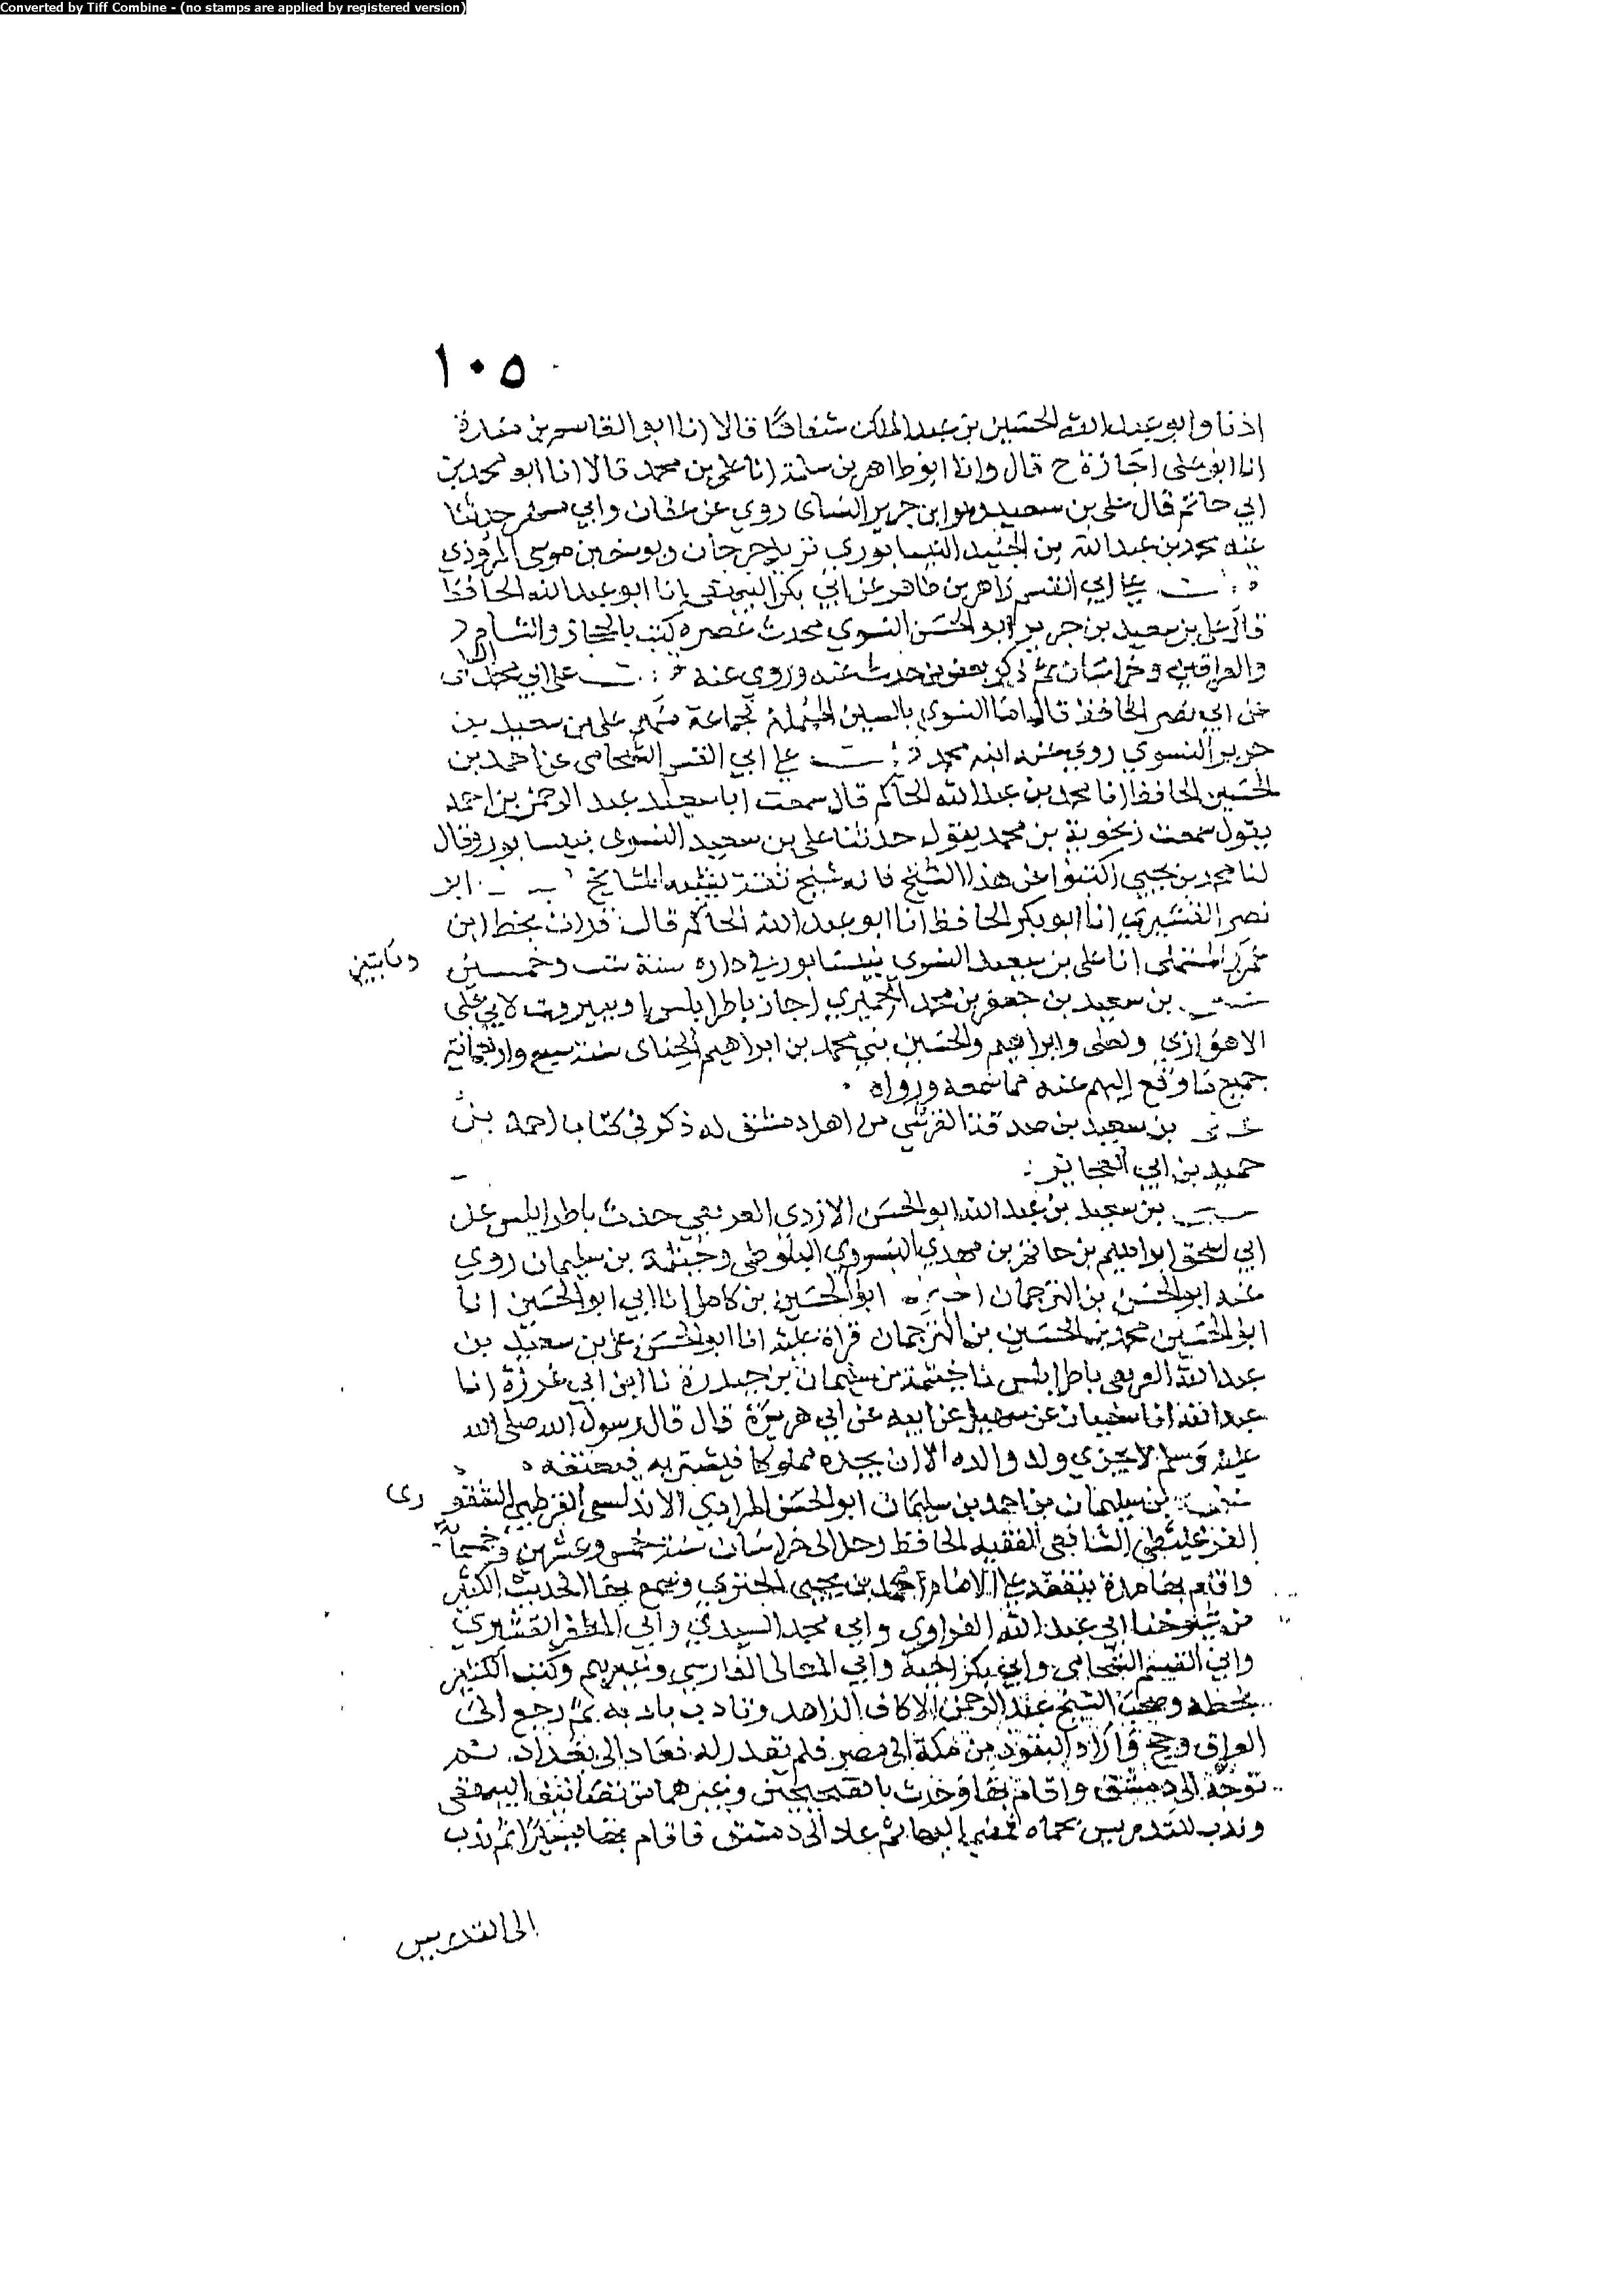 Converted by Tiff Combine - (no stamps are applied by registered version)
١٠٥
اذنا وابو عبد الله الحسين بن عبد الملك شفاها قالا انا ابو القاسم بن مندة
انا ابو علي اجازة ح قال وانا ابو طاهر بن سلمة انا علي بن محمد قالا انا ابو محمد بن
ابي حاتم قال علي بن سعيد وهو ابن جرير النساى روي عن عفان وابي مسهر حدثنا
عنه محمد بن عبد الله بن الجنيد النيسابوري نزيل جرجان ويوسف بن موسى المروذي
على ابي القسم زاهر بن طاهر عن ابي بكر البيهقى انا ابو عبد الله الحافظ
قال علي بن سعيد بن جرير ابو الحسن النسوي محدث عصره كتب بالحجاز والشام
والعراقين وخراسان ثم ذكر بعض من حدث عنه وروي عنه على ابي محمد
عن ابي نصر الحافظ قال اما النسوي بالسين المهملة فجماعة منهم علي بن سعيد بن
جرير النسوي روى عنه ابنه محمد على ابي القسم الشحامى عن احمد بن
الحسين الحافظ انا محمد بن عبد الله الحاكم قال سمعت ابا سعيد عبد الرحمن بن احمد
يقول سمعت زنجوية بن محمد يقول حدثنا علي بن سعيد النسوى بنيسابور وقال
لنا محمد بن يحيى اكتبوا عن هذا الشيخ فانه شيخ ثقة يشبه المشايخ ابو
نصر القشيري انا ابو بكر الحافظ انا ابو عبد الله الحاكم قال قرات بخط ابن
عمرو المستملى انا علي بن سعيد النسوي بنيسابور في داره سنة ست وخمسين ومايتين
بن سعيد بن جعفر بن محمد الحميري اجاز باطرابلس او ببيروت لابي علي
الاهوازي ولعلي وابراهيم والحسين بني محمد بن ابراهيم الحناى سنة سبع واربعمائة
جميع ما وقع اليهم عنه مما سمعه ورواه
بن سعيد بن صدقة القرشي من اهل دمشق له ذكر في كتاب احمد بن
حميد بن ابي العجائز
بن سعيد بن عبد الله ابو الحسن الازدى حدث باطرابلس عن
ابي اسحق ابراهيم بن حاتم بن مهدي التستري البلوطى وخيثمة بن سليمان روي
عنه ابو الحسن بن الترجمان ابو الحسين بن كامل انا ابي ابو الحسين انا
ابو الحسين محمد بن الحسين بن الترجمان قراة عليه انا ابو الحسن علي بن سعيد بن
عبد الله باطرابلس نا خيثمة بن سليمان بن حيدرة نا ابن ابي غرزة انا
عبد الله انا سفيان عن سهيل عن ابيه عن ابي هريرة قال قال رسول الله صلى الله
عليه وسلم لا يجزي ولد والده الا ان يجده مملوكا فيشتريه فيعتقه
بن سليمان بن احمد بن سليمان ابو الحسن المرادي الاندلسى القرطبي الشقورى
الفرغليطي الشافعى الفقيه الحافظ رحل الى خراسان سنة خمس وعشرين وخمسمائة
واقام بها مدة يتفقه على الامام محمد بن يحيى الجنزي وسمع بها الحديث الكثير
من شيوخنا ابي عبد الله الفراوي وابي محمد السيدي وابي المظفر القشيري
وابي القسم الشحامى وابي بكر وابي المعالى الفارسي وغيرهم وكتب الكثير
بخطه وصحب الشيخ عبد الرحمن الاكاف الزاهد وتادب بادبه ثم رجع الى
العراق وحج واراد النفوذ من مكة الى مصر فلم يقدر له فعاد الى بغداد ثم
توجه الى دمشق واقام بها وحدث بالصحيحين وغيرهما من تصانيف البيهقى
وندب للتدريس بحماه فمضى اليها ثم عاد الى دمشق فاقام بها يسيرا ثم ندب
الى التدريس